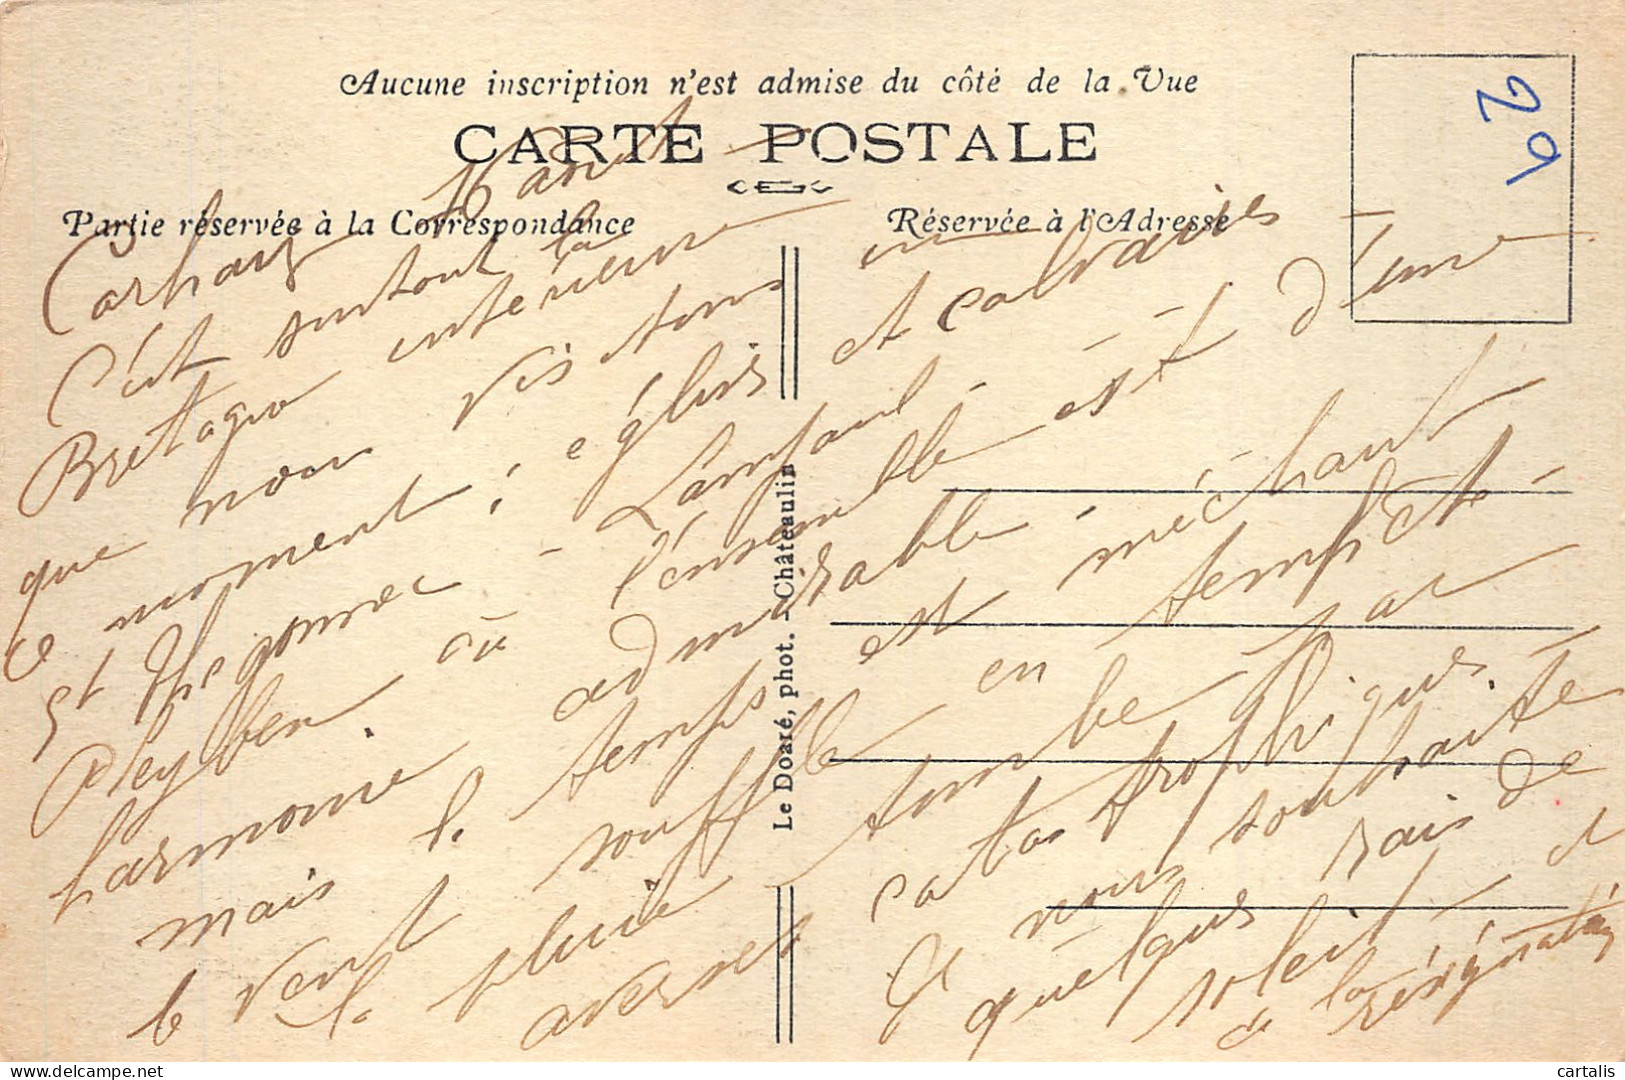 Aucune inscription n'est admise du côté de la Vue
CARTE POSTALE
Partie réservée à la Correspondance
Réservée à l'Adresse
29
Carhaix Août
C'est surtout la
Bretagne intérieure
que nous visitons en
ce moment : églises et calvaires -
St Thégonnec - Lampaul -
Pleyben où l'ensemble est d'une
harmonie admirable -
mais le temps est méchant
le vent souffle en tempête -
la pluie tombe par
averses catastrophiques -
Je vous souhaite
quelques rais de
soleil et
de la résignation
Le Doaré, phot. - Châteaulin
cartalis